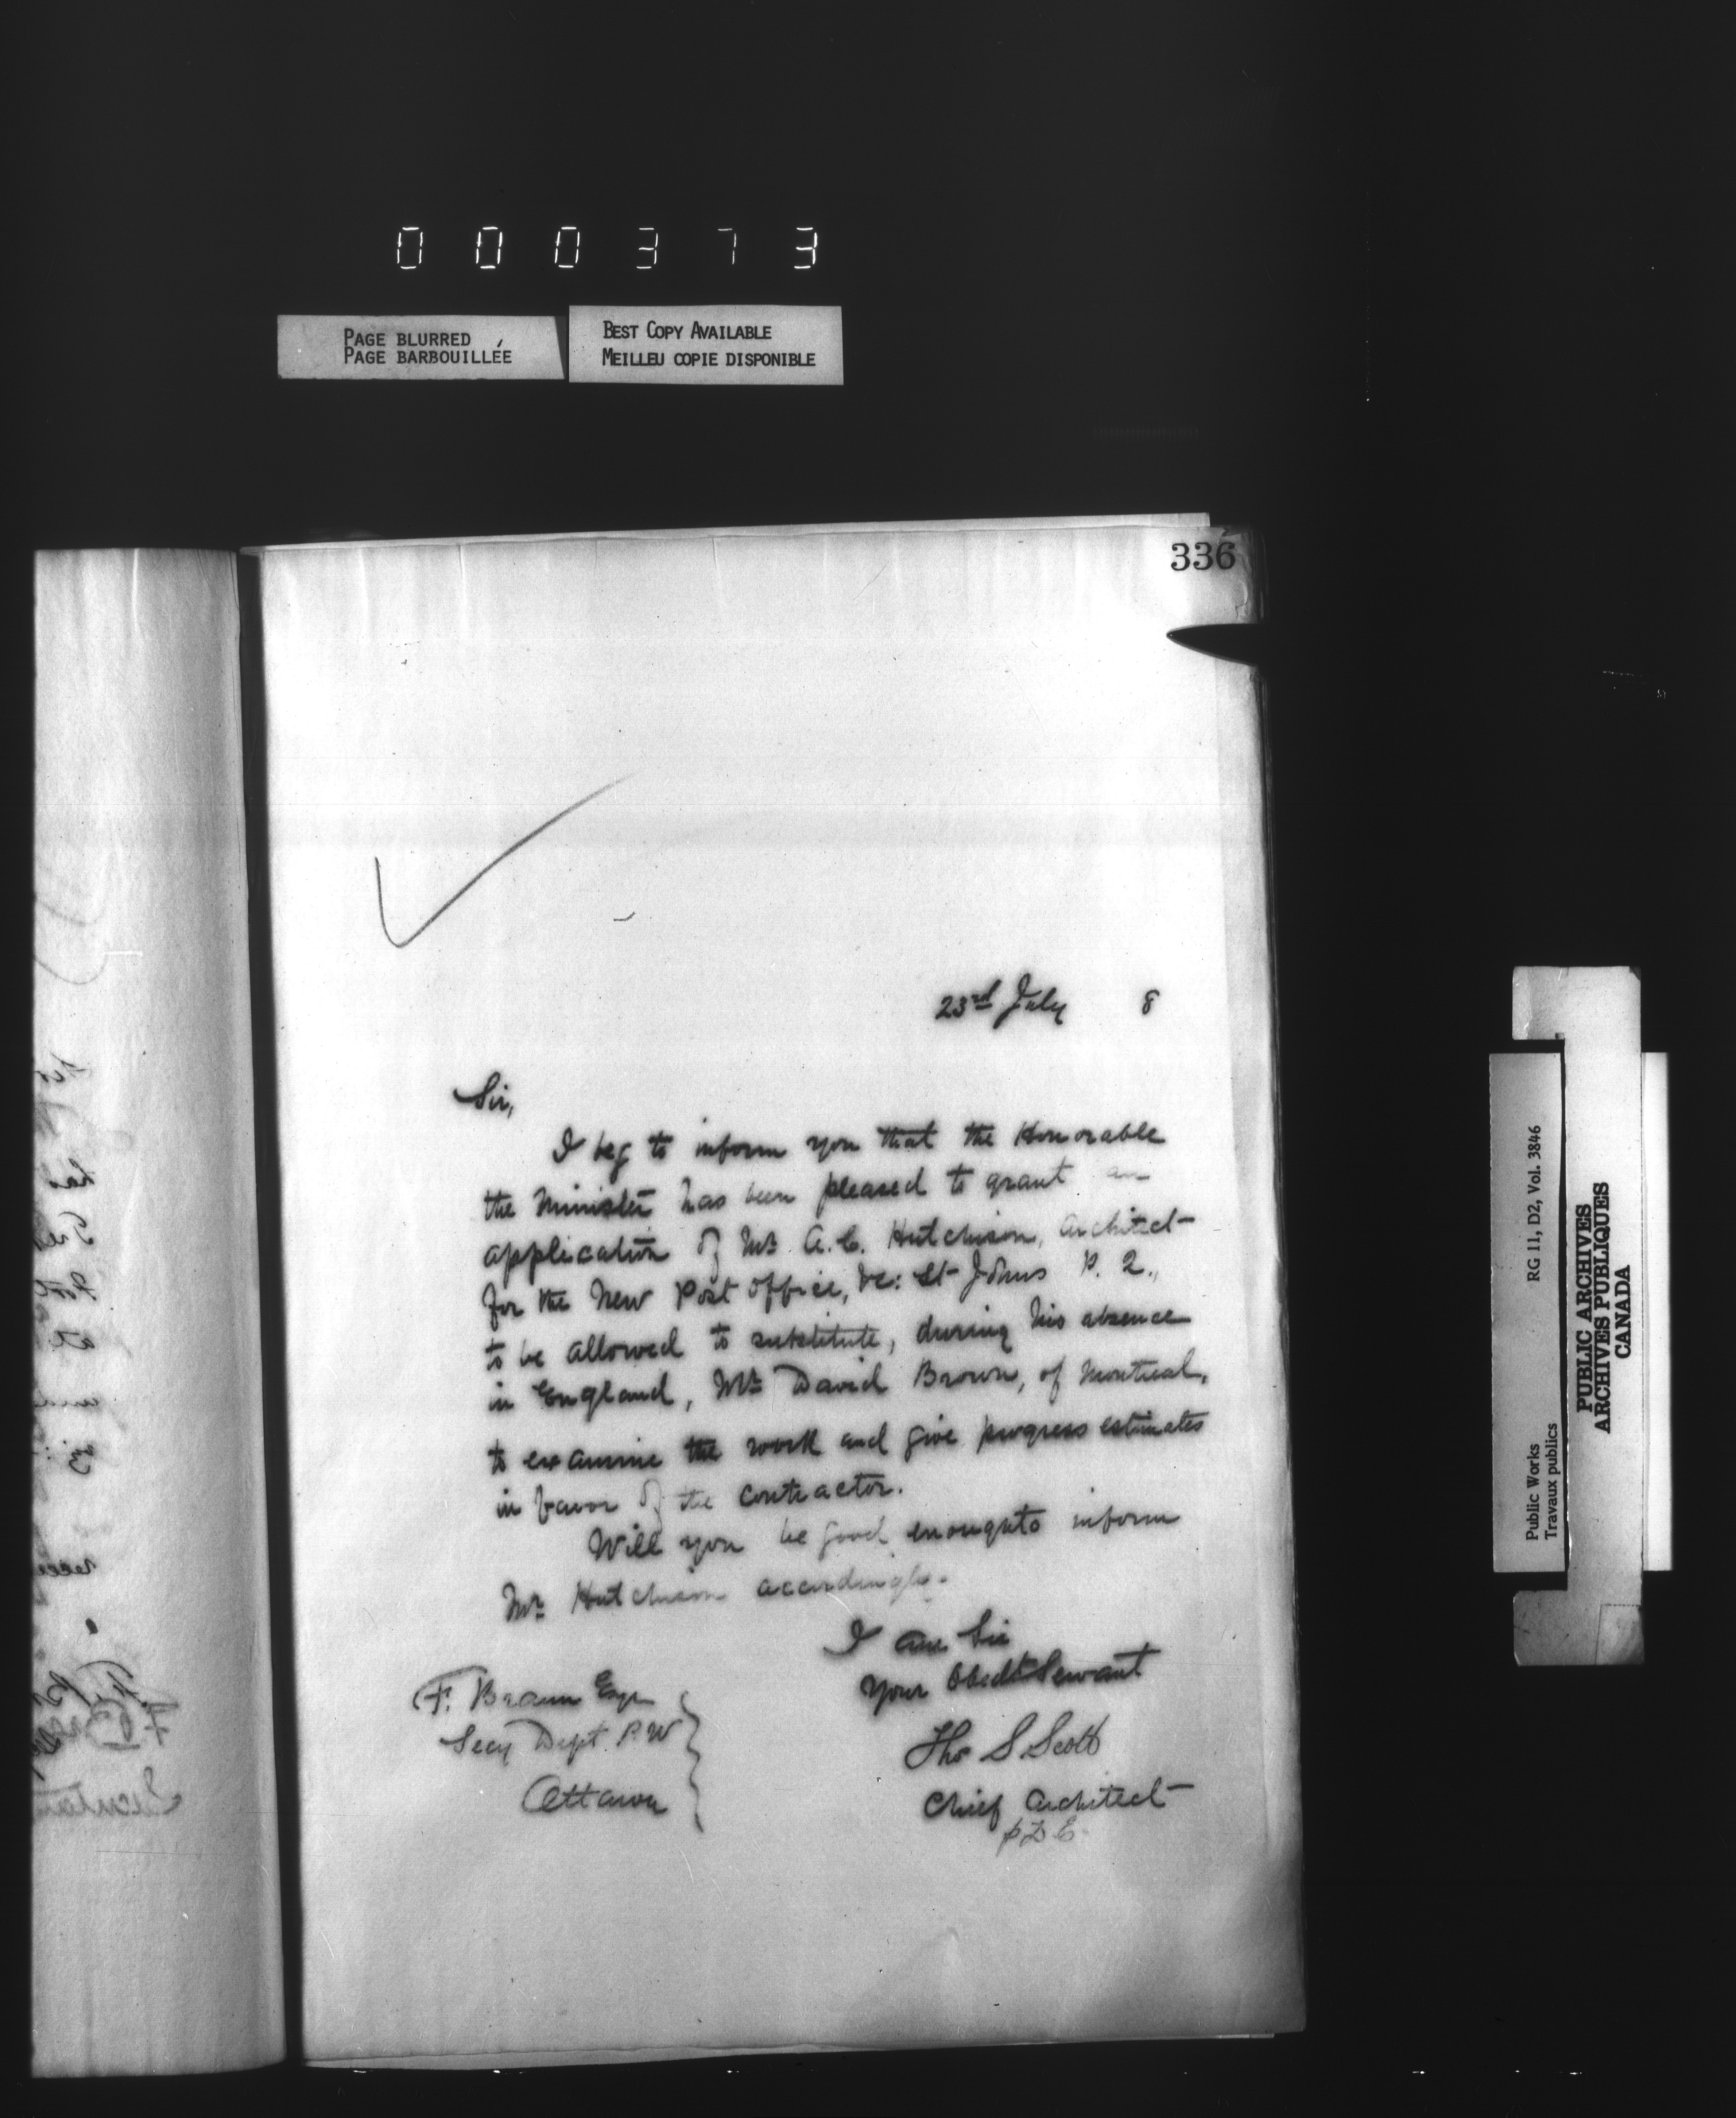 000373
PAGE BLURRED
PAGE BARBOUILLÉE
BEST COPY AVAILABLE
MEILLEU COPIE DISPONIBLE
336
23rd July 8
Sir,
I beg to inform you that the Honorable
the Minister has been pleased to grant an
application of Mr. A. C. Hutchison, Architect
for the New Post Office, &c: St Johns P. Q.,
to be allowed to substitute, during his absence
in England, Mr David Brown, of Montreal,
to examine the work and give progress estimates
in favor of the contractor.
Will you be good enough to inform
Mr Hutchison accordingly.
I am Sir
Your Obedt Servant
Thos S Scott
Chief Architect
F. Braun Esqr
Secy Dept. P. W
Ottawa
RG 11, D2, Vol. 3846
Public Works
Travaux publics
PUBLIC ARCHIVES
ARCHIVES PUBLIQUES
CANADA